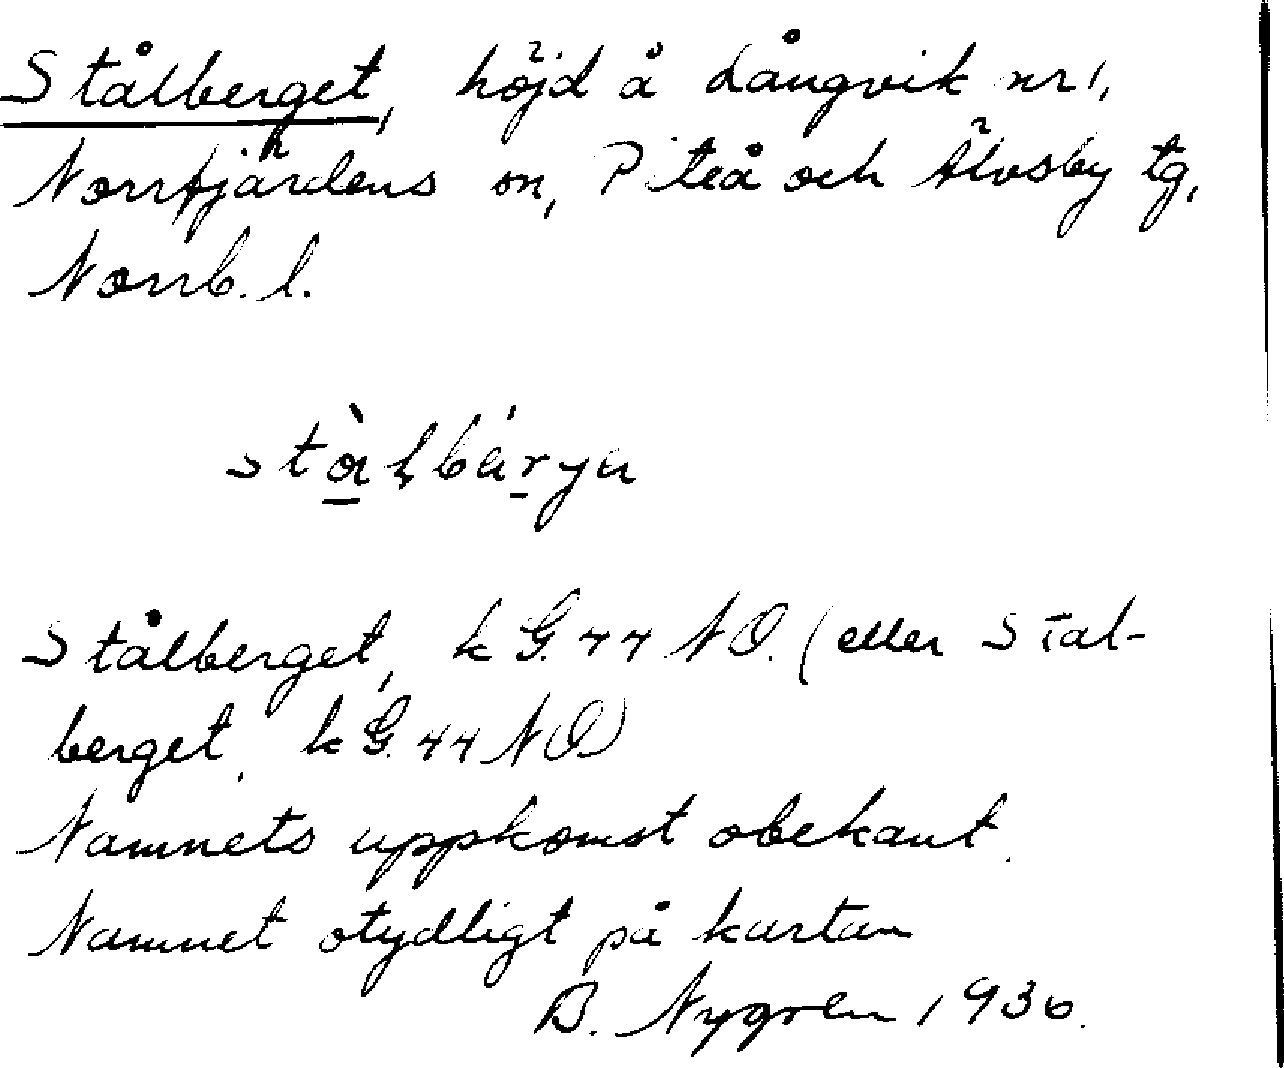 Stålberget, höjd å Långvik nr 1,
Norrfjärdens sn, Piteå och Älvsby tg,
Norrb. l.
Stålberget, k G. 44 NO. (eller Stal-
berget, k G. 44 NO)
Namnets uppkomst obekant.
Namnet otydligt på kartan
B. Nygren 1936.